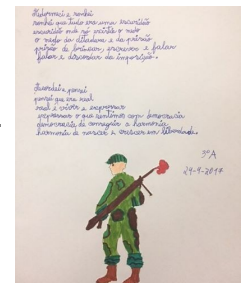 Adormeci e sonhei
sonhei que tudo era uma escuridão
escuridão onde só existia o ruído
o ruído da ditadura e da prisão
prisão de brincar, escrever e falar
falar e discordar da imposição.
Acordei e pensei
pensei que era real
real é viver e expressar
expressar o que sentimos com democracia
democracia da comunhão e harmonia
harmonia de nascer e crescer em liberdade.
3ºA
24-4-2017